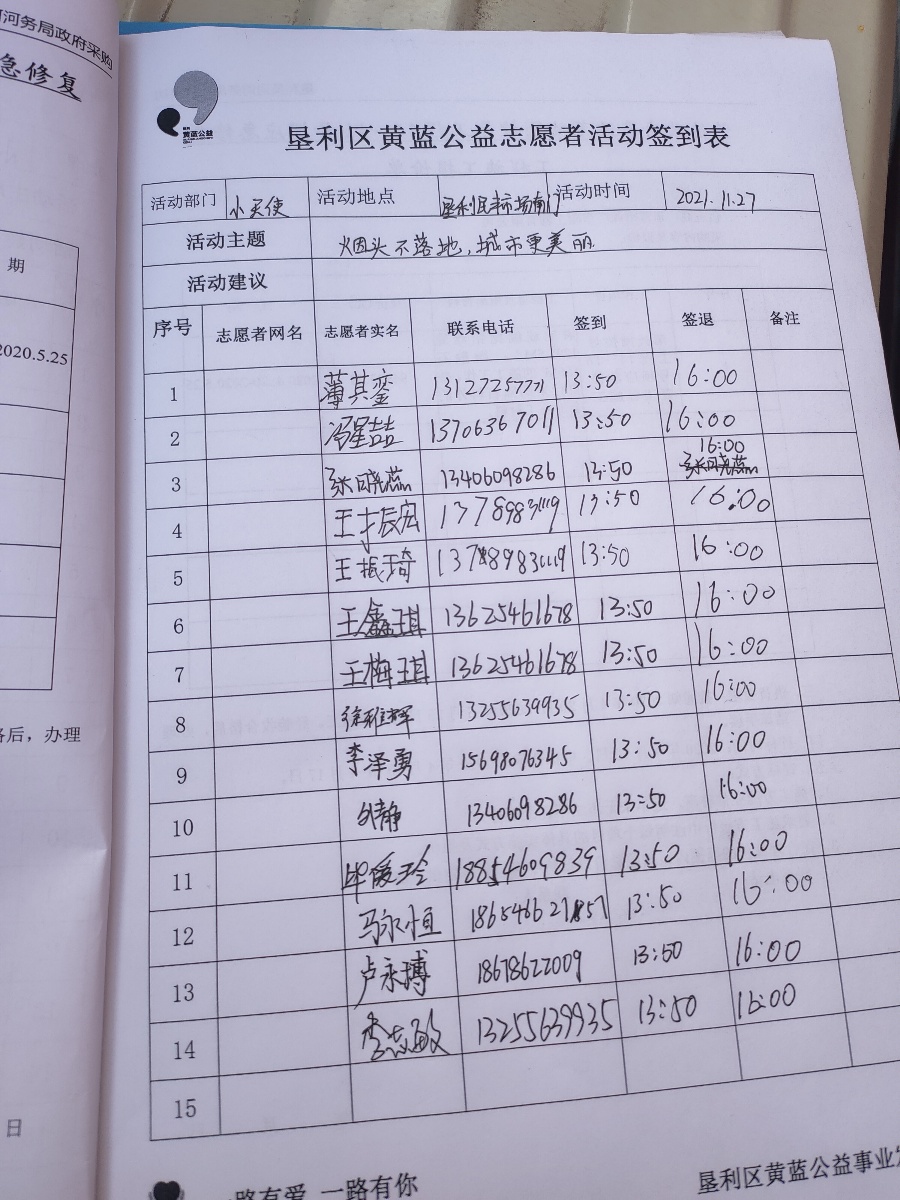 河务局政府采购
急修复
期
2020.5.25
后，办理
日
黄蓝公益
垦利区黄蓝公益志愿者活动签到表
活动部门 小天使 活动地点 垦利民丰市场南门 活动时间 2021.11.27
活动主题 烟头不落地，城市更美丽
活动建议
序号 志愿者网名 志愿者实名 联系电话 签到 签退 备注
1 薄其銮 13127257771 13:50 16:00
2 冯星喆 13706367011 13:50 16:00
3 张晓蕊 13406098286 13:50 16:00 张晓蕊
4 王振宏 13:50 16:00
5 王振琦 13:50 16:00
6 王鑫琪 13625461678 13:50 16:00
7 王梅琪 13625461678 13:50 16:00
8 徐雅辉 13255639935 13:50 16:00
9 李泽勇 15698076345 13:50 16:00
10 静 13406098286 13:50 16:00
11 毕媛玲 18854609839 13:50 16:00
12 马永恒 13:50 16:00
13 卢永博 18678622009 13:50 16:00
14 李志敏 13255639935 13:50 16:00
15
路有爱 一路有你
垦利区黄蓝公益事业发